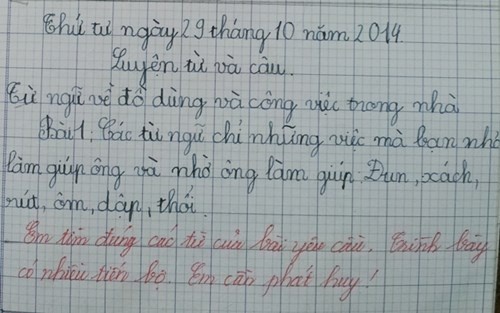 Thứ tư ngày 29 tháng 10 năm 2014
Luyện từ và câu.
Từ ngữ về đồ dùng và công việc trong nhà
Bài 1: Các từ ngữ chỉ những việc mà bạn nhỏ
làm giúp ông và nhờ ông làm giúp: Đun, xách,
rút, ôm, dập, thổi.
Em tìm đúng các từ của bài yêu cầu. Trình bày
có nhiều tiến bộ. Em cần phát huy!